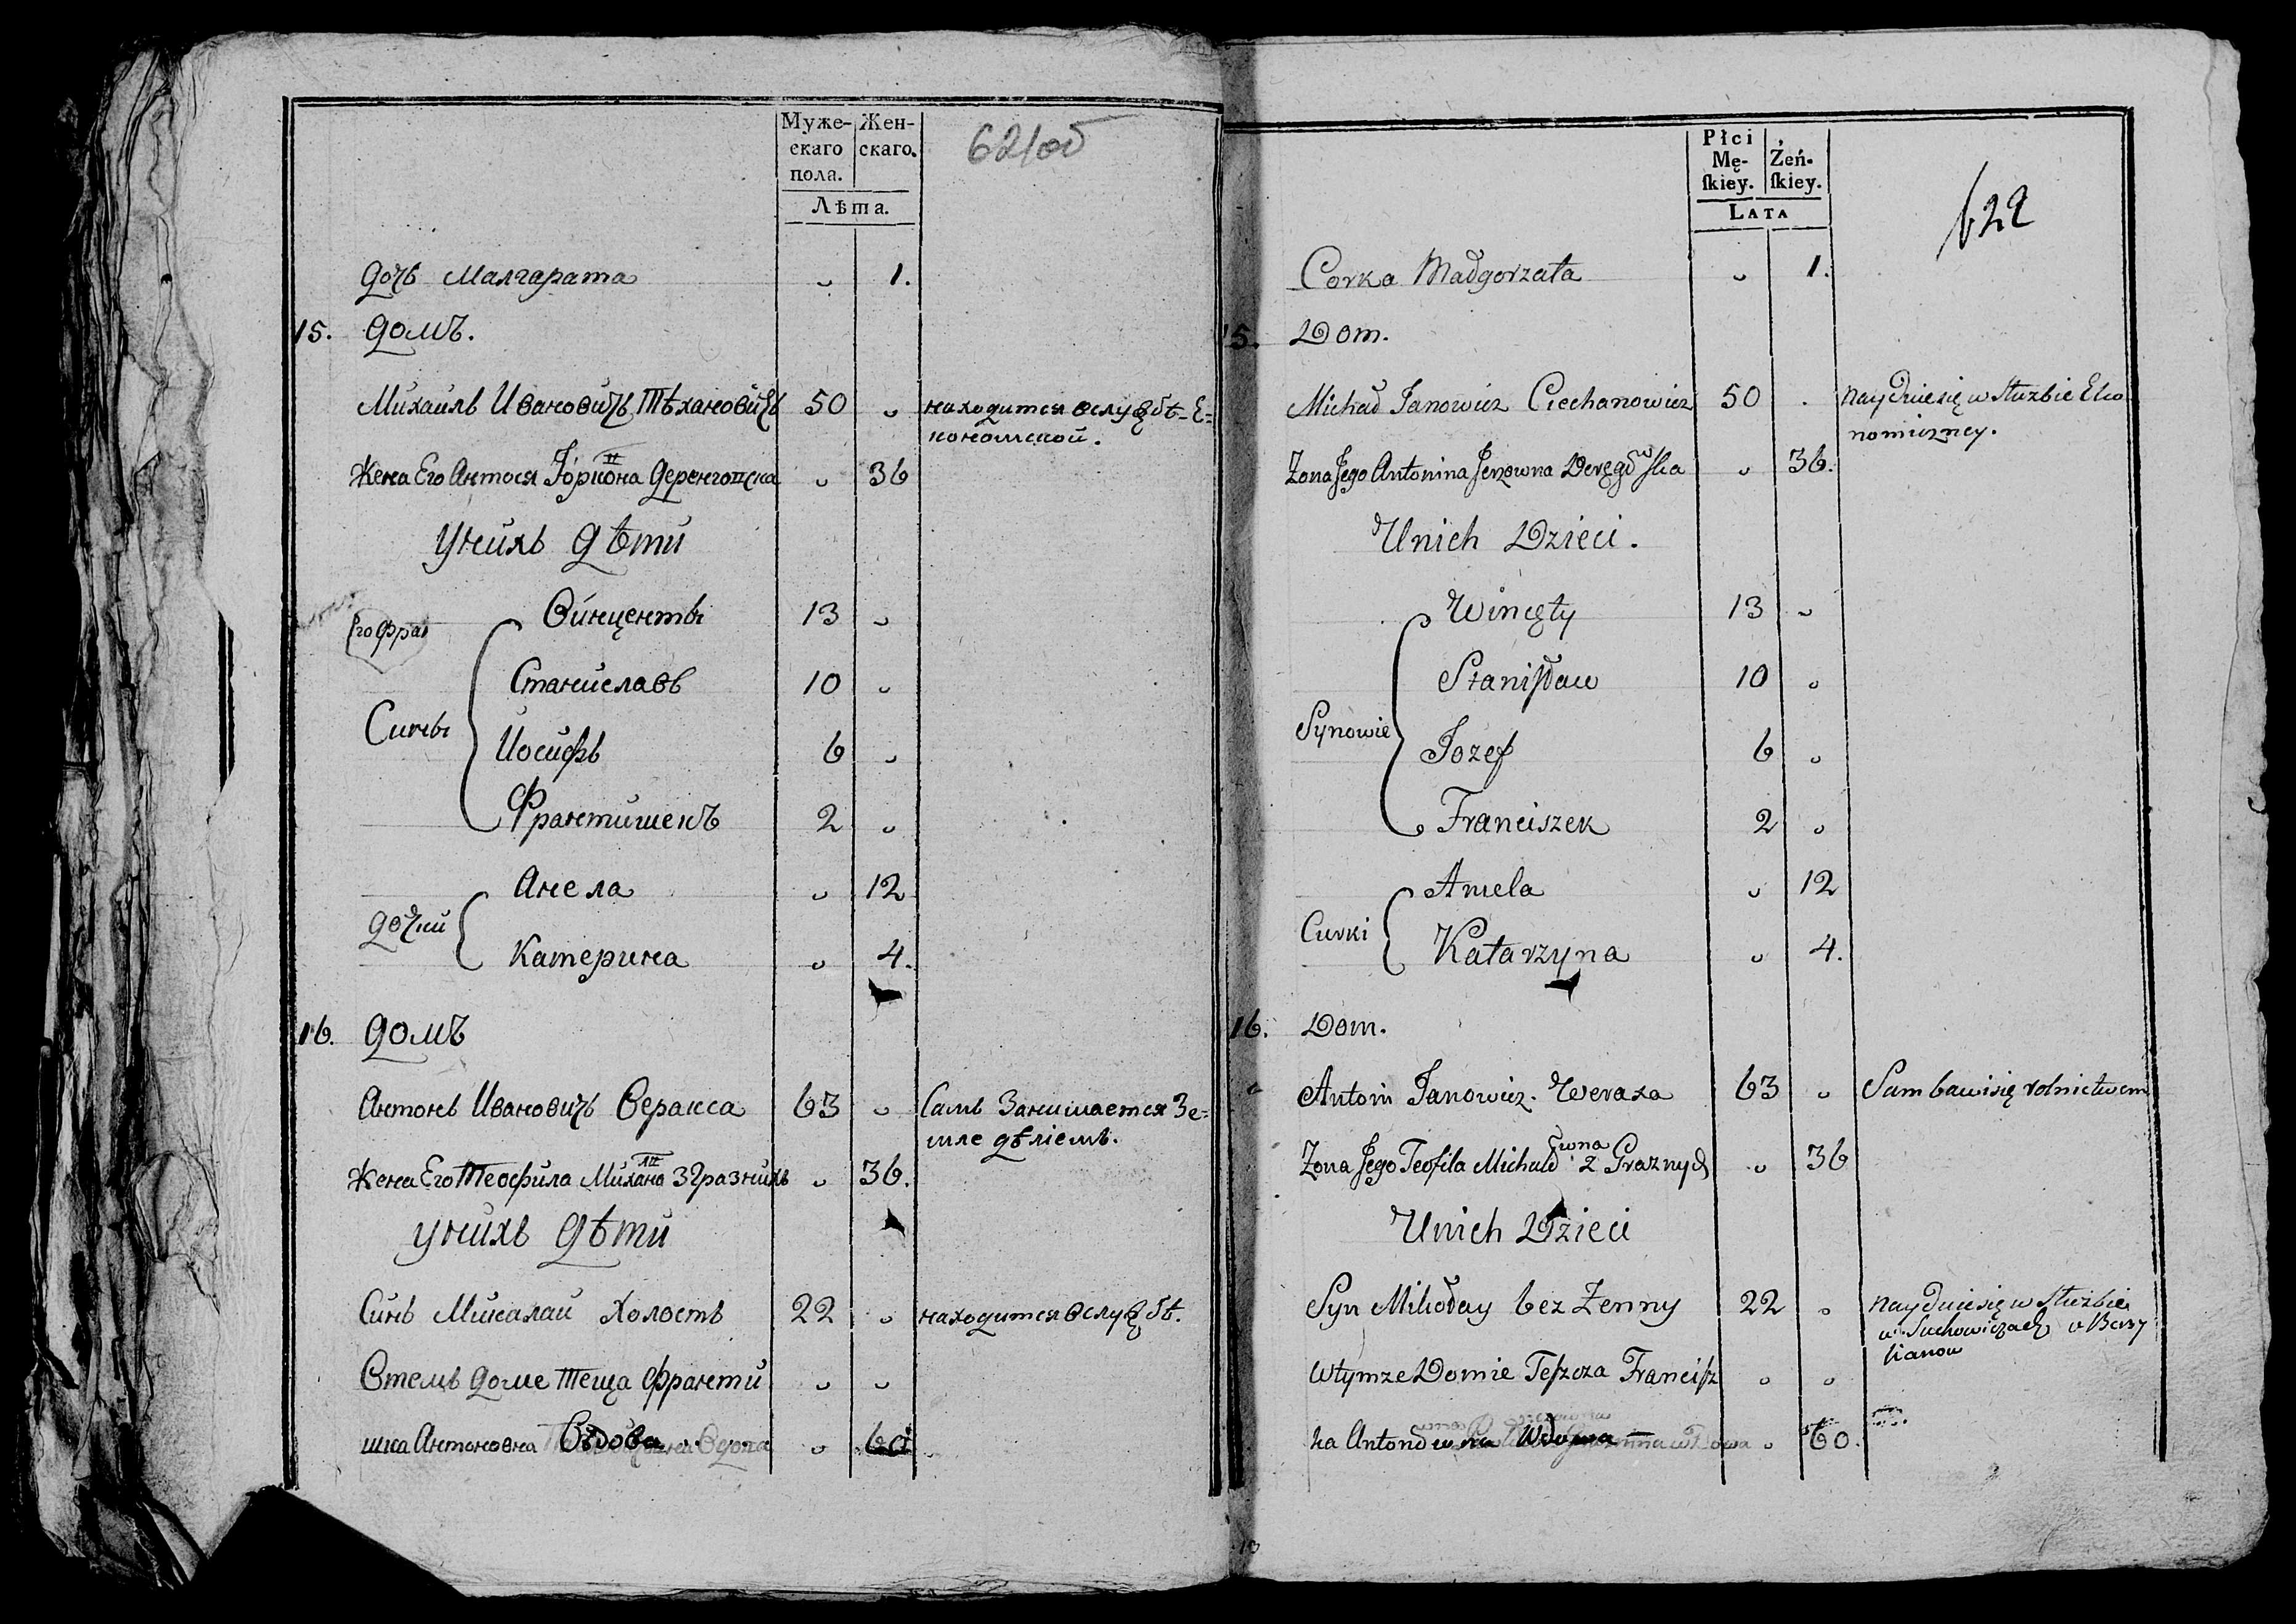 Муже-
скаго
пола.
Жен-
скаго.
Лѣта.
621об
дочь Малгарата 1.
15. домъ.
Михаилъ Ивановичъ Тѣхановичъ 50 находится вслужбѣ Е=
кономской.
Жена Его Антося Юріона Деренговска 36
унихъ дѣти
Винценты 13
Его фра
Станиславъ 10
Сины
Иосифъ 6
Франтишекъ 2
Анела 12
дочки
Катерина 4.
16. домъ
Антонъ Ивановичъ Веракса 63 Самъ Занимается Зе=
мле дѣліемъ.
Жена Его Теофила Михало зГразнихъ 36.
унихъ дѣти
Синъ Микалай Холостъ 22 находится вслужбѣ.
Втемъ доме теща Франти
шка Антоновна Вдова 60
Płci
Mę-
skiey.
Żeń-
skiey.
LATA
622
Corka Małgorzata 1.
15. Dom.
Michał Janowicz Ciechanowicz 50 nayduie się w służbie Eko
nomiczney.
Zona Jego Antonina Jerzowna Deręgowska 36.
Unich Dzieci.
Wincęty 13
Stanisław 10
Synowie
Jozef 6
Franciszek 2
Aniela 12
Curki
Katarzyna 4.
16. Dom.
Antoni Janowicz. Weraxa 63 Sam bawi się rolnictwem
Zona Jego Teofila Michałowna z Graznych 36
Unich Dzieci
Syn Mikołay bez Zenny 22 nayduie się w służbie
w Suchowiczach u
Wtymze Domie Teszcza Francisz
ka Antonowna Wdowa 60.